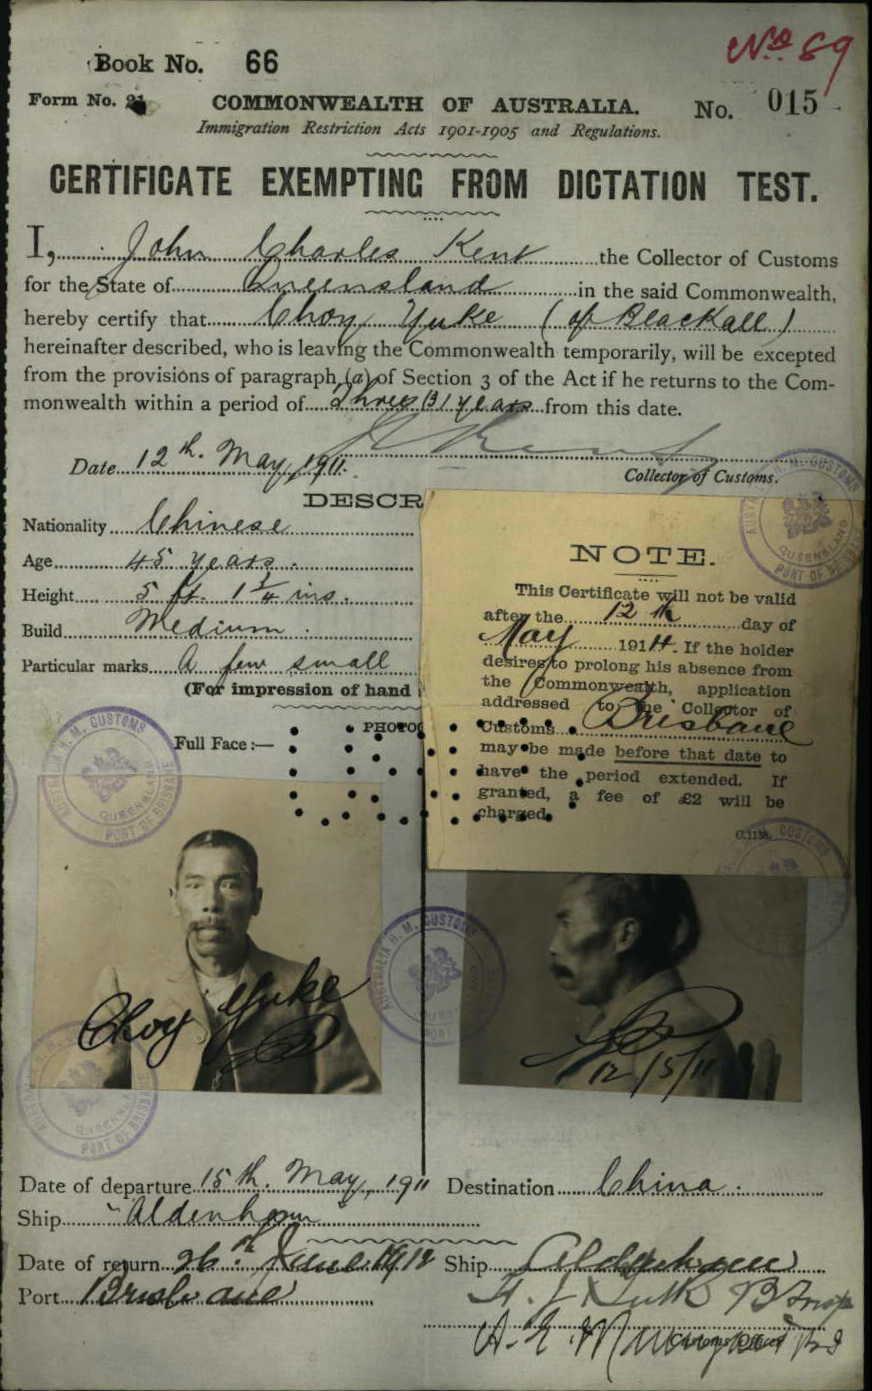 Nº 89
Book No. 66
Form No. 21
COMMONWEALTH OF AUSTRALIA. No. 015
Immigration Restriction Acts 1901-1905 and Regulations.
CERTIFICATE EXEMPTING FROM DICTATION TEST.
I, John Charles Kent the Collector of Customs
for the State of Queensland in the said Commonwealth,
hereby certify that Choy Yuke (of Blackall)
hereinafter described, who is leaving the Commonwealth temporarily, will be excepted
from the provisions of paragraph (a) of Section 3 of the Act if he returns to the Com-
monwealth within a period of three (3) years from this date.
Date 12th. May, 1911.
Collector of Customs.
DESCR
Nationality Chinese
Age 45 years.
Height 5 ft. 1 3/4 ins.
Build Medium.
Particular marks A few small
(For impression of hand
PHOTOG
Full Face:—
NOTE.
This Certificate will not be valid
after the 12th day of
May 1914. If the holder
desires to prolong his absence from
the Commonwealth, application
addressed to the Collector of
Customs Brisbane
may be made before that date to
have the period extended. If
granted, a fee of £2 will be
charged.
AUSTRALIA H. M. CUSTOMS
QUEENSLAND
PORT OF BRISBANE
Choy Yuke
12/5/11
Date of departure 15th. May, 1911 Destination China.
Ship "Aldenham"
Date of return 26th June 1912 Ship Aldenham
Port Brisbane